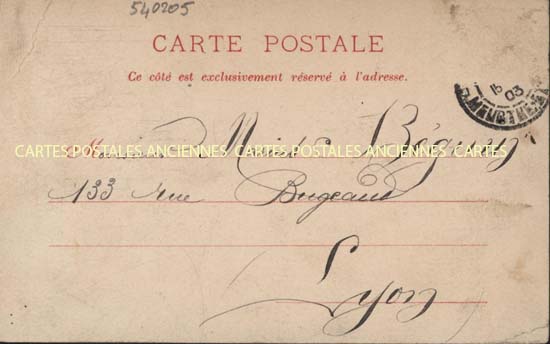 540205
CARTE POSTALE
Ce côté est exclusivement réservé à l'adresse.
16
03
CARTES POSTALES ANCIENNES CARTES POSTALES ANCIENNES CARTES
133 rue Bugeaud
Lyon